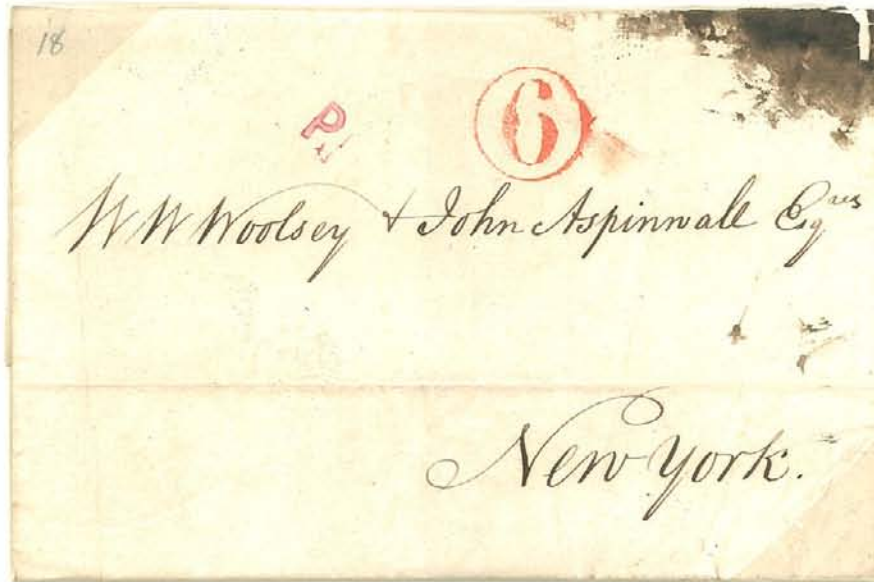 18
P
6
W W Woolsey & John Aspinwall Esqres
New York.